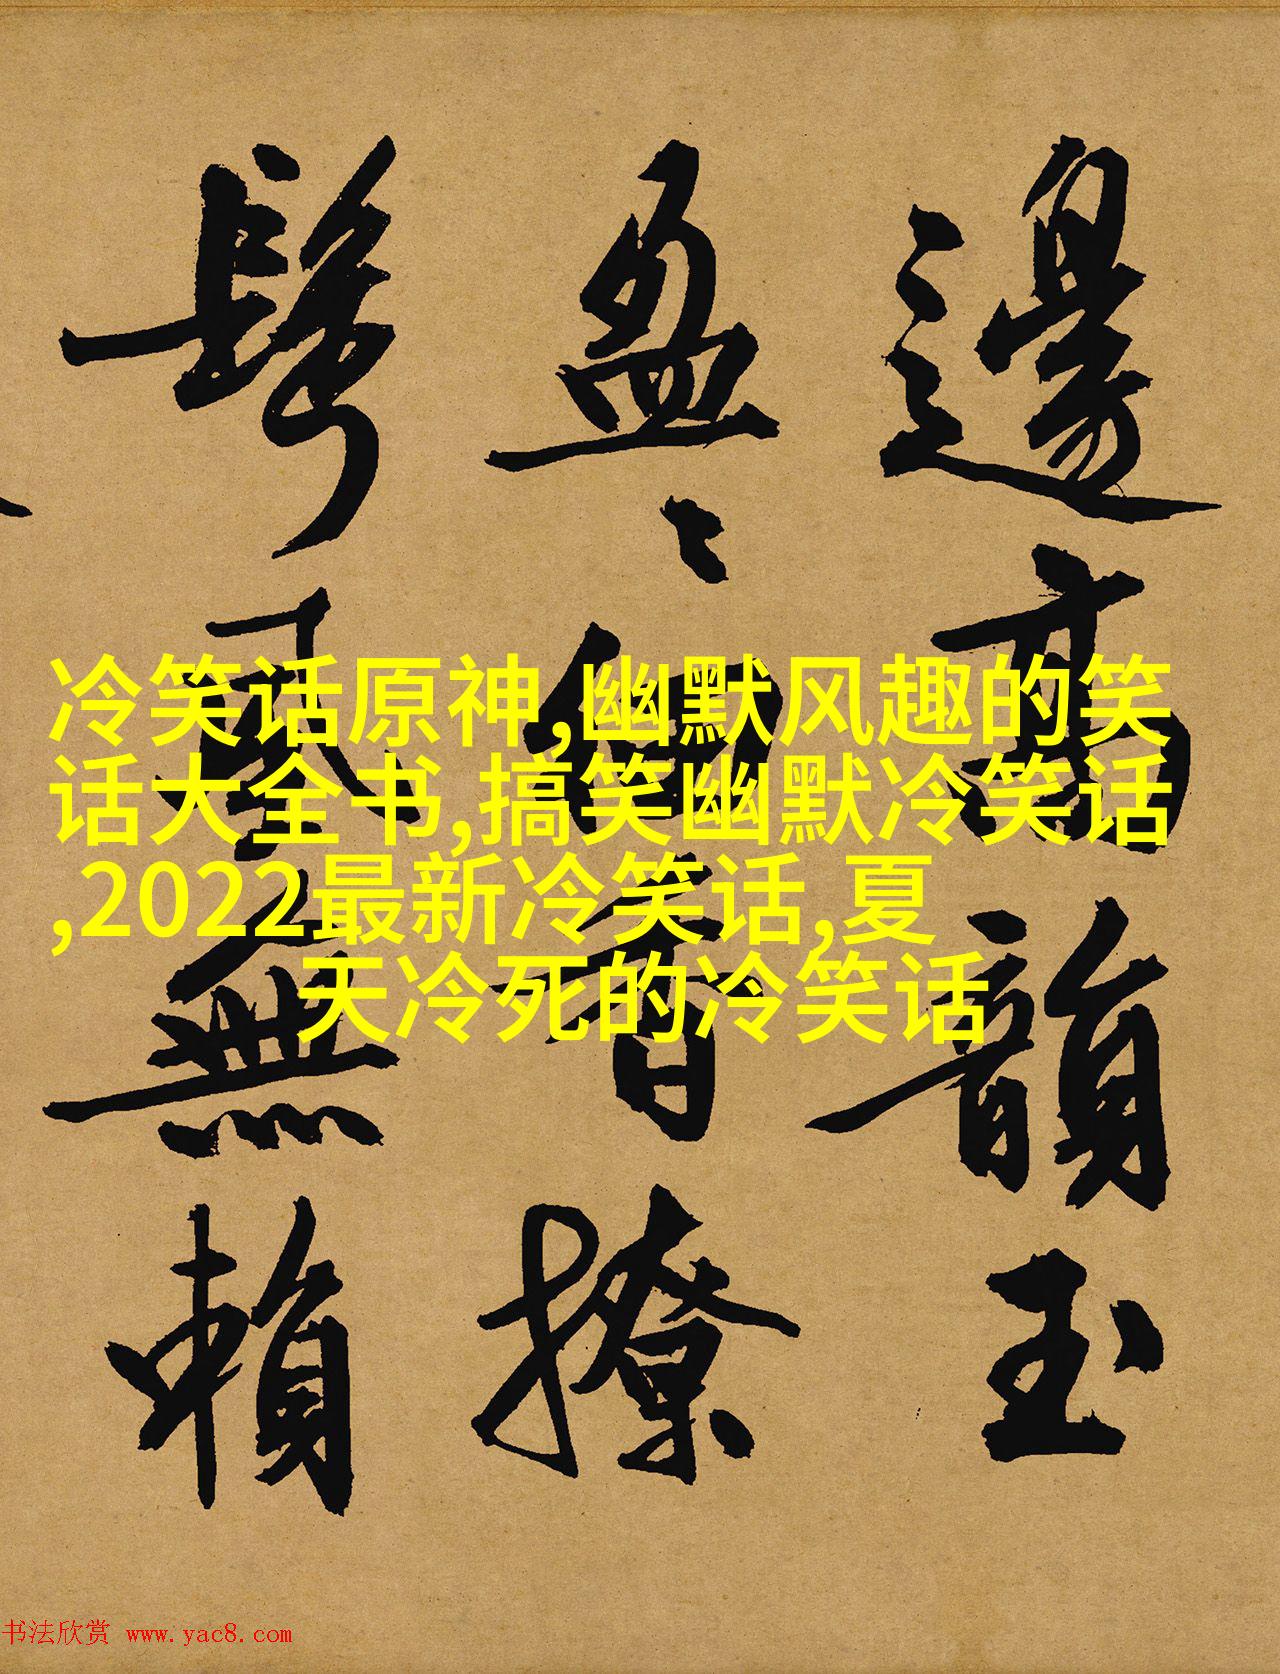 冷笑话原神,幽默风趣的笑
话大全书,搞笑幽默冷笑话
,2022最新冷笑话,夏
天冷死的冷笑话
邊高韻玉
盈〻細香撩
鬢風無賴
书法欣赏 www.yac8.com